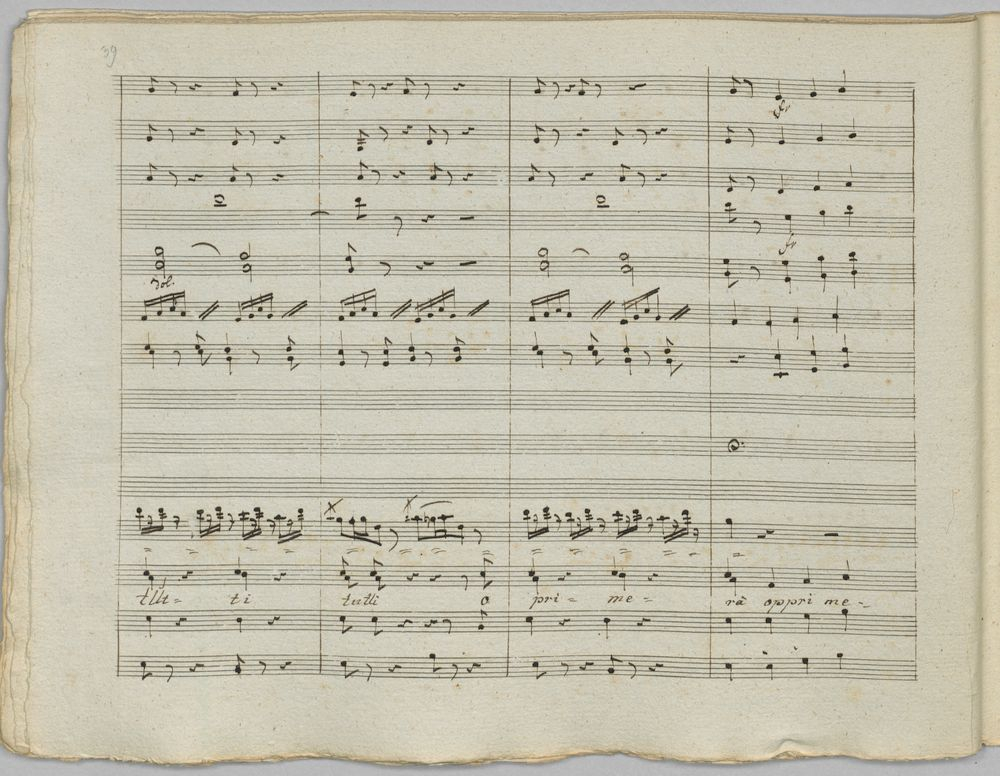 39
fr
fr
dol.
tut= ti tutti o pri= me= rà opprime=